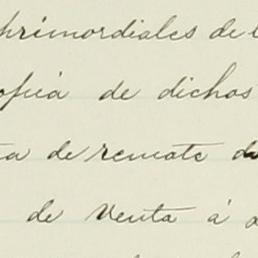 primordiales de
copia de dichos
ta de remate de
de venta á